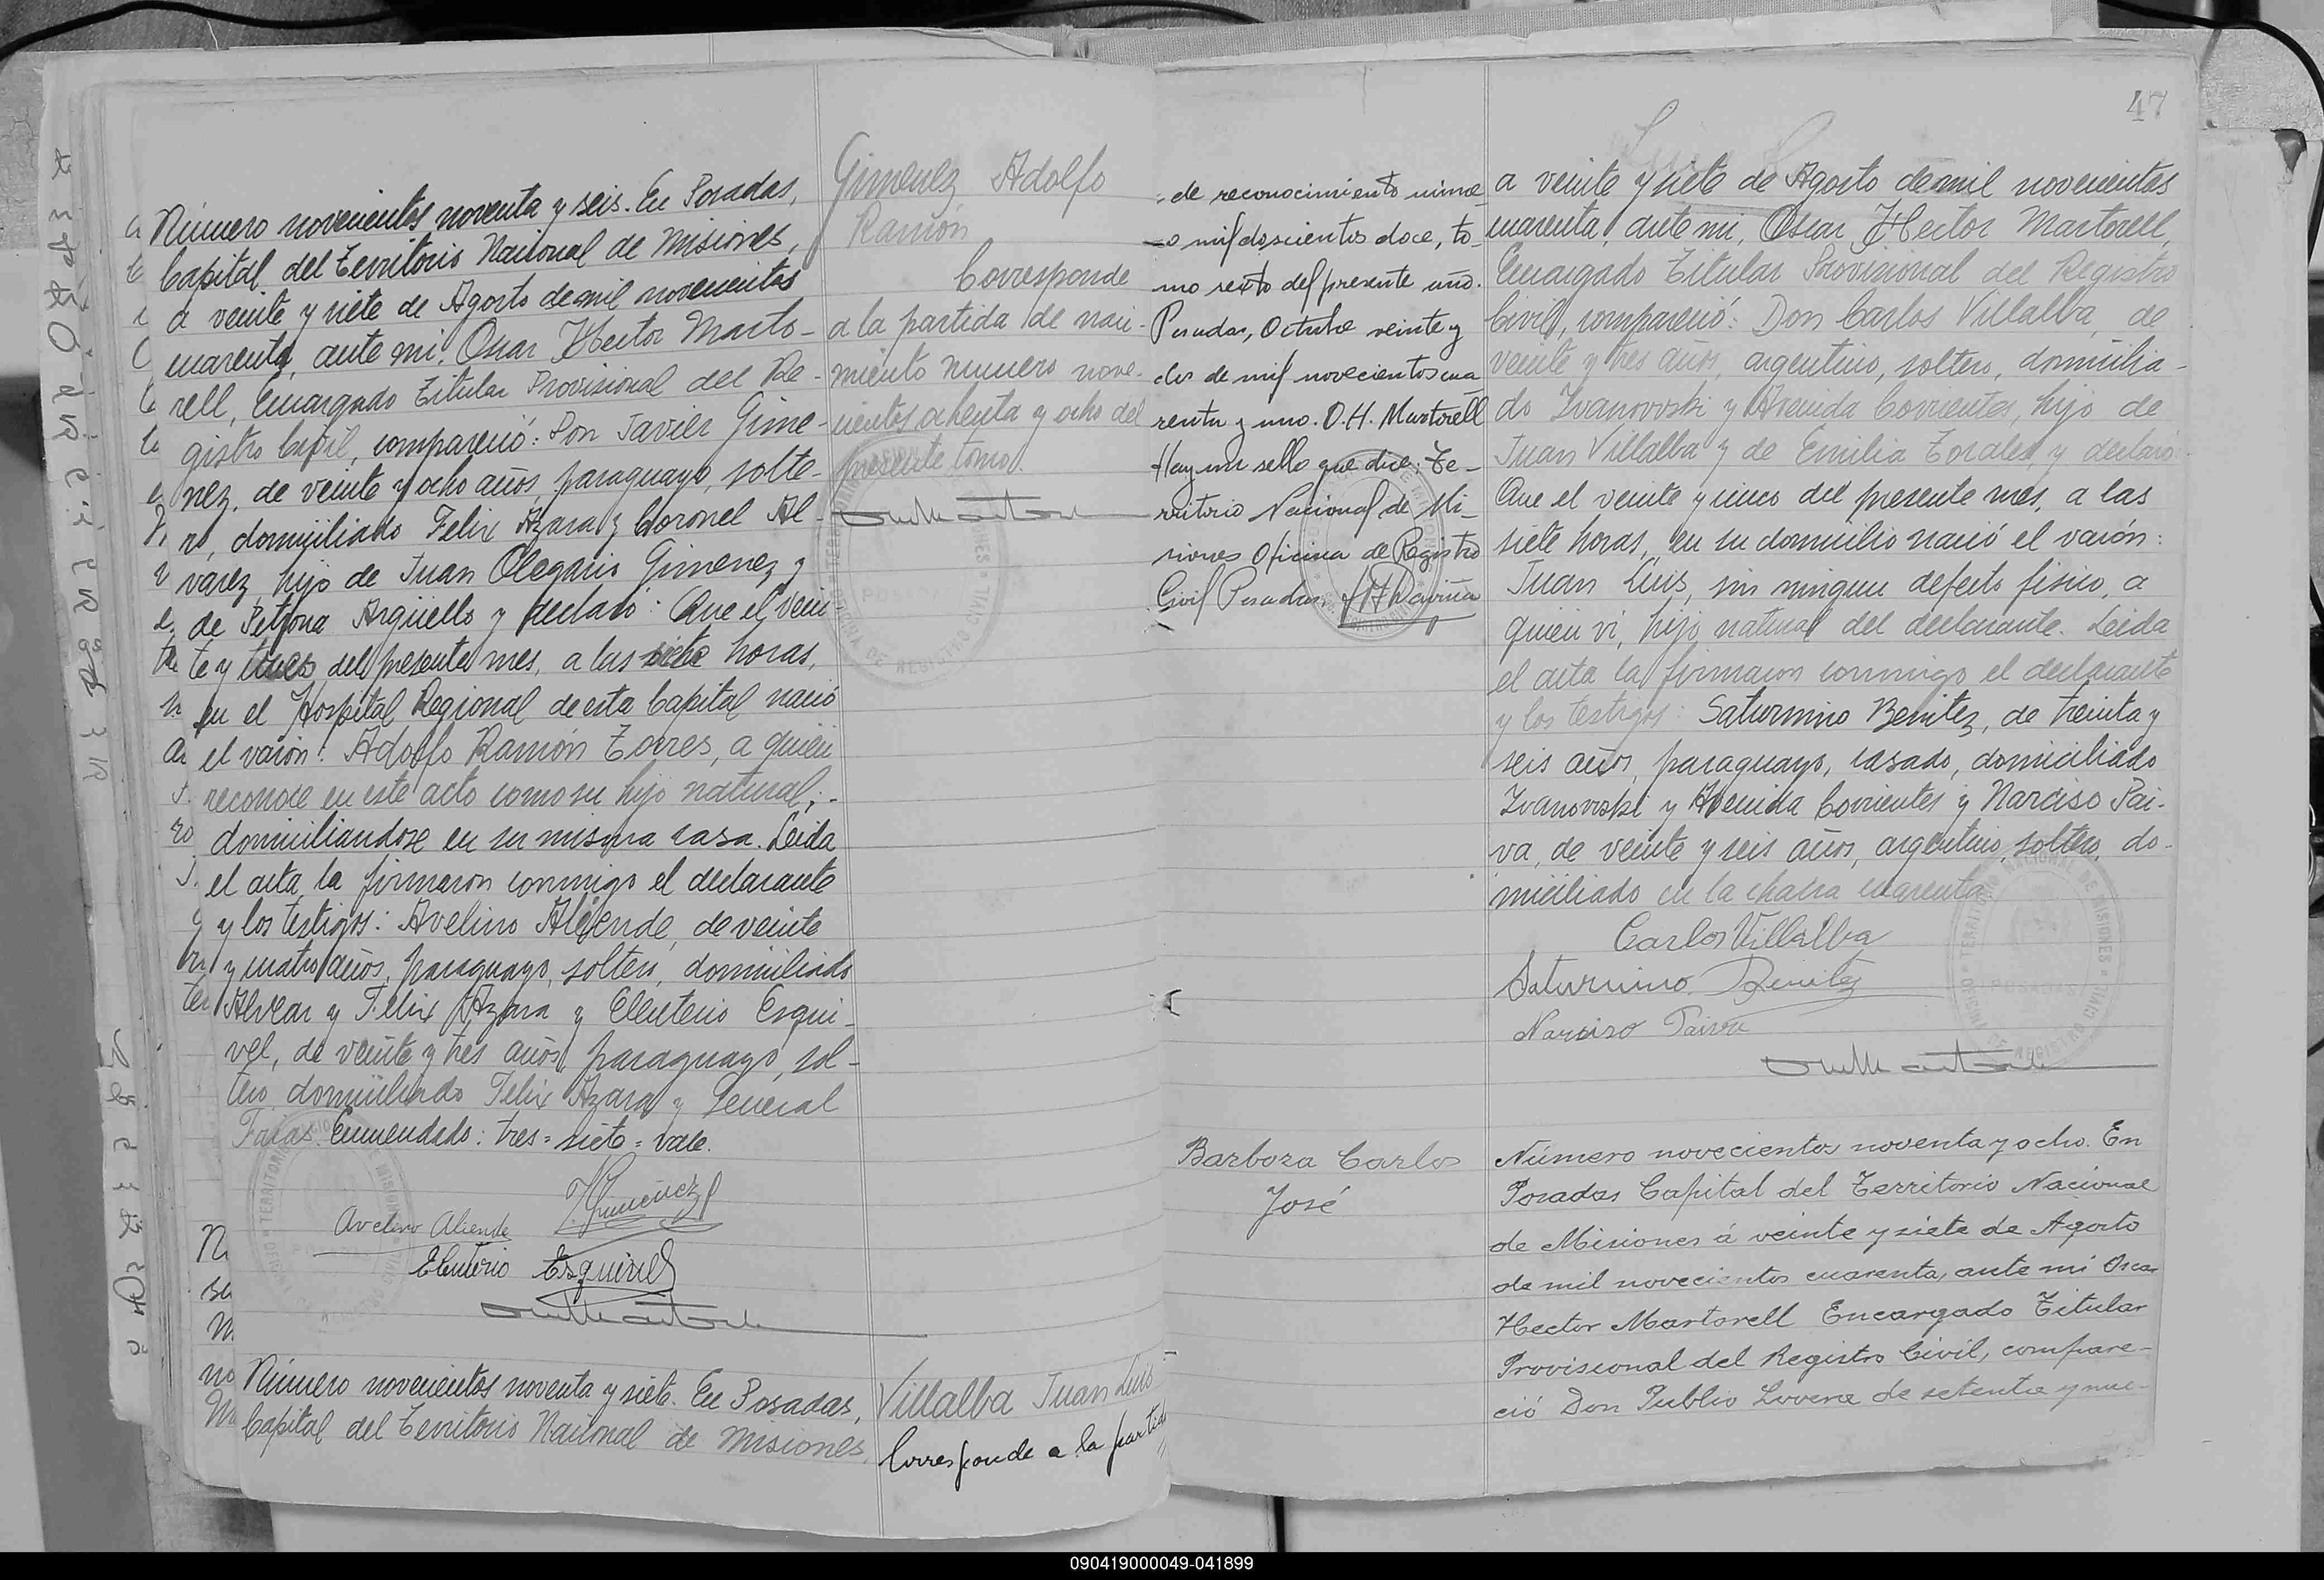 Número novecientos noventa y seis. En Posadas,
Capital del Territorio Nacional de Misiones,
a veinte y siete de Agosto de mil novecientos
cuarenta, ante mi, Oscar Hector Marto-
rell, Encargado Titular Provisional del Re-
gistro Civil, compareció: Don Javier Gime-
nez, de veinte y ocho años, paraguayo, solte-
ro, domiciliado Felix Azara y Coronel Al-
varez, hijo de Juan Olegario Gimenez y
de Petrona Argüello y declaró: Que el vein-
te y tres del presente mes, a las siete horas,
en el Hospital Regional de esta Capital nació
el varón: Adolfo Ramón Torres, a quien
reconoce en este acto como su hijo natural;-
domiciliandose en su misma casa. Leida
el acta la firmaron conmigo el declarante
y los testigos: Avelino Aliende, de veinte
y cuatro años, paraguayo, soltero, domiciliado
Alvear y Felix Azara y Eleuterio Esqui-
vel, de veinte y tres años, paraguayo, sol-
tero domiciliado Felix Azara y General
Enmendado: tres = siete = vale.
J Gimenez
Avelino Aliende
Eleuterio Esquivel
Gimenez Adolfo
Ramón
Corresponde
a la partida de naci-
miento numero nove-
cientos ochenta y ocho del
presente tomo.
Número novecientos noventa y siete. En Posadas,
Capital del Territorio Nacional de Misiones,
Villalba Juan Luis
Corresponde a la partida
de reconocimiento nume-
ro mil doscientos doce, to-
mo sexto del presente año.
Posadas, Octubre veinte y
dos de mil novecientos cua
renta y uno. O.H. Martorell
Hay un sello que dice: Te-
rritorio Nacional de Mi-
siones Oficina de Registro
Civil Posadas.
47
a veinte y siete de Agosto de mil novecientos
cuarenta, ante mi, Oscar Hector Martorell,
Encargado Titular Provisional del Registro
Civil, compareció: Don Carlos Villalba, de
veinte y tres años, argentino, soltero, domicilia-
do Ivanovski y Avenida Corrientes, hijo de
Juan Villalba y de Emilia Torales, y declaró:
Que el veinte y cinco del presente mes, a las
siete horas, en su domicilio nació el varón:
Juan Luis, sin ningun defecto fisico, a
quien vi, hijo natural del declarante. Leida
el acta la firmaron conmigo el declarante
y los testigos: Saturnino Benitez, de treinta y
seis años, paraguayo, casado, domiciliado
Ivanovski y Avenida Corrientes y Narciso Pai-
va, de veinte y seis años, argentino, soltero, do-
miciliado en la chacra cuarenta.
Carlos Villalba
Saturnino Benitez
Narciso Paiva
Barboza Carlos
José
Número novecientos noventa y ocho. En
Posadas Capital del Territorio Nacional
de Misiones á veinte y siete de Agosto
de mil novecientos cuarenta, ante mi Oscar
Hector Martorell Encargado Titular
Provisional del Registro Civil, compare-
ció Don Publio Lovera de setenta y nue-
090419000049-041899